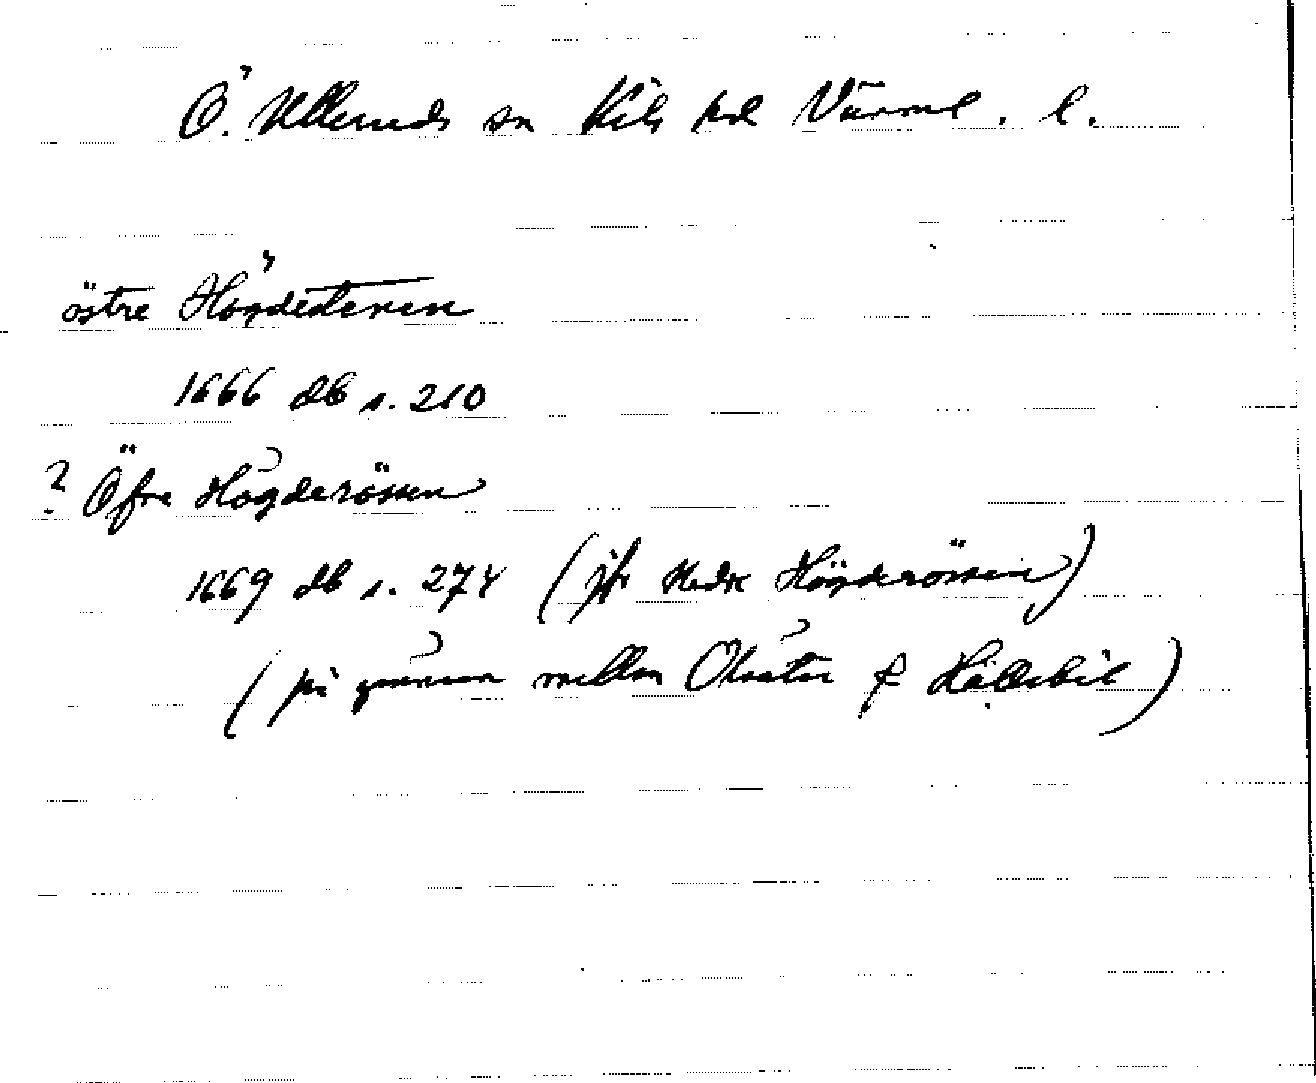 Ö. Ulleruds sn Kils hd Värml. l.
östre
1666 db s. 210
? Öfre Högderössen
1669 db s. 274 (jfr Nedre Högderössen)
(på gränsen mellan Olsäter & Hällekil)